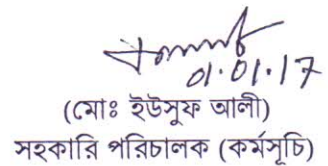 01.01.17
(মোঃ ইউসুফ আলী)
সহকারি পরিচালক (কর্মসূচি)